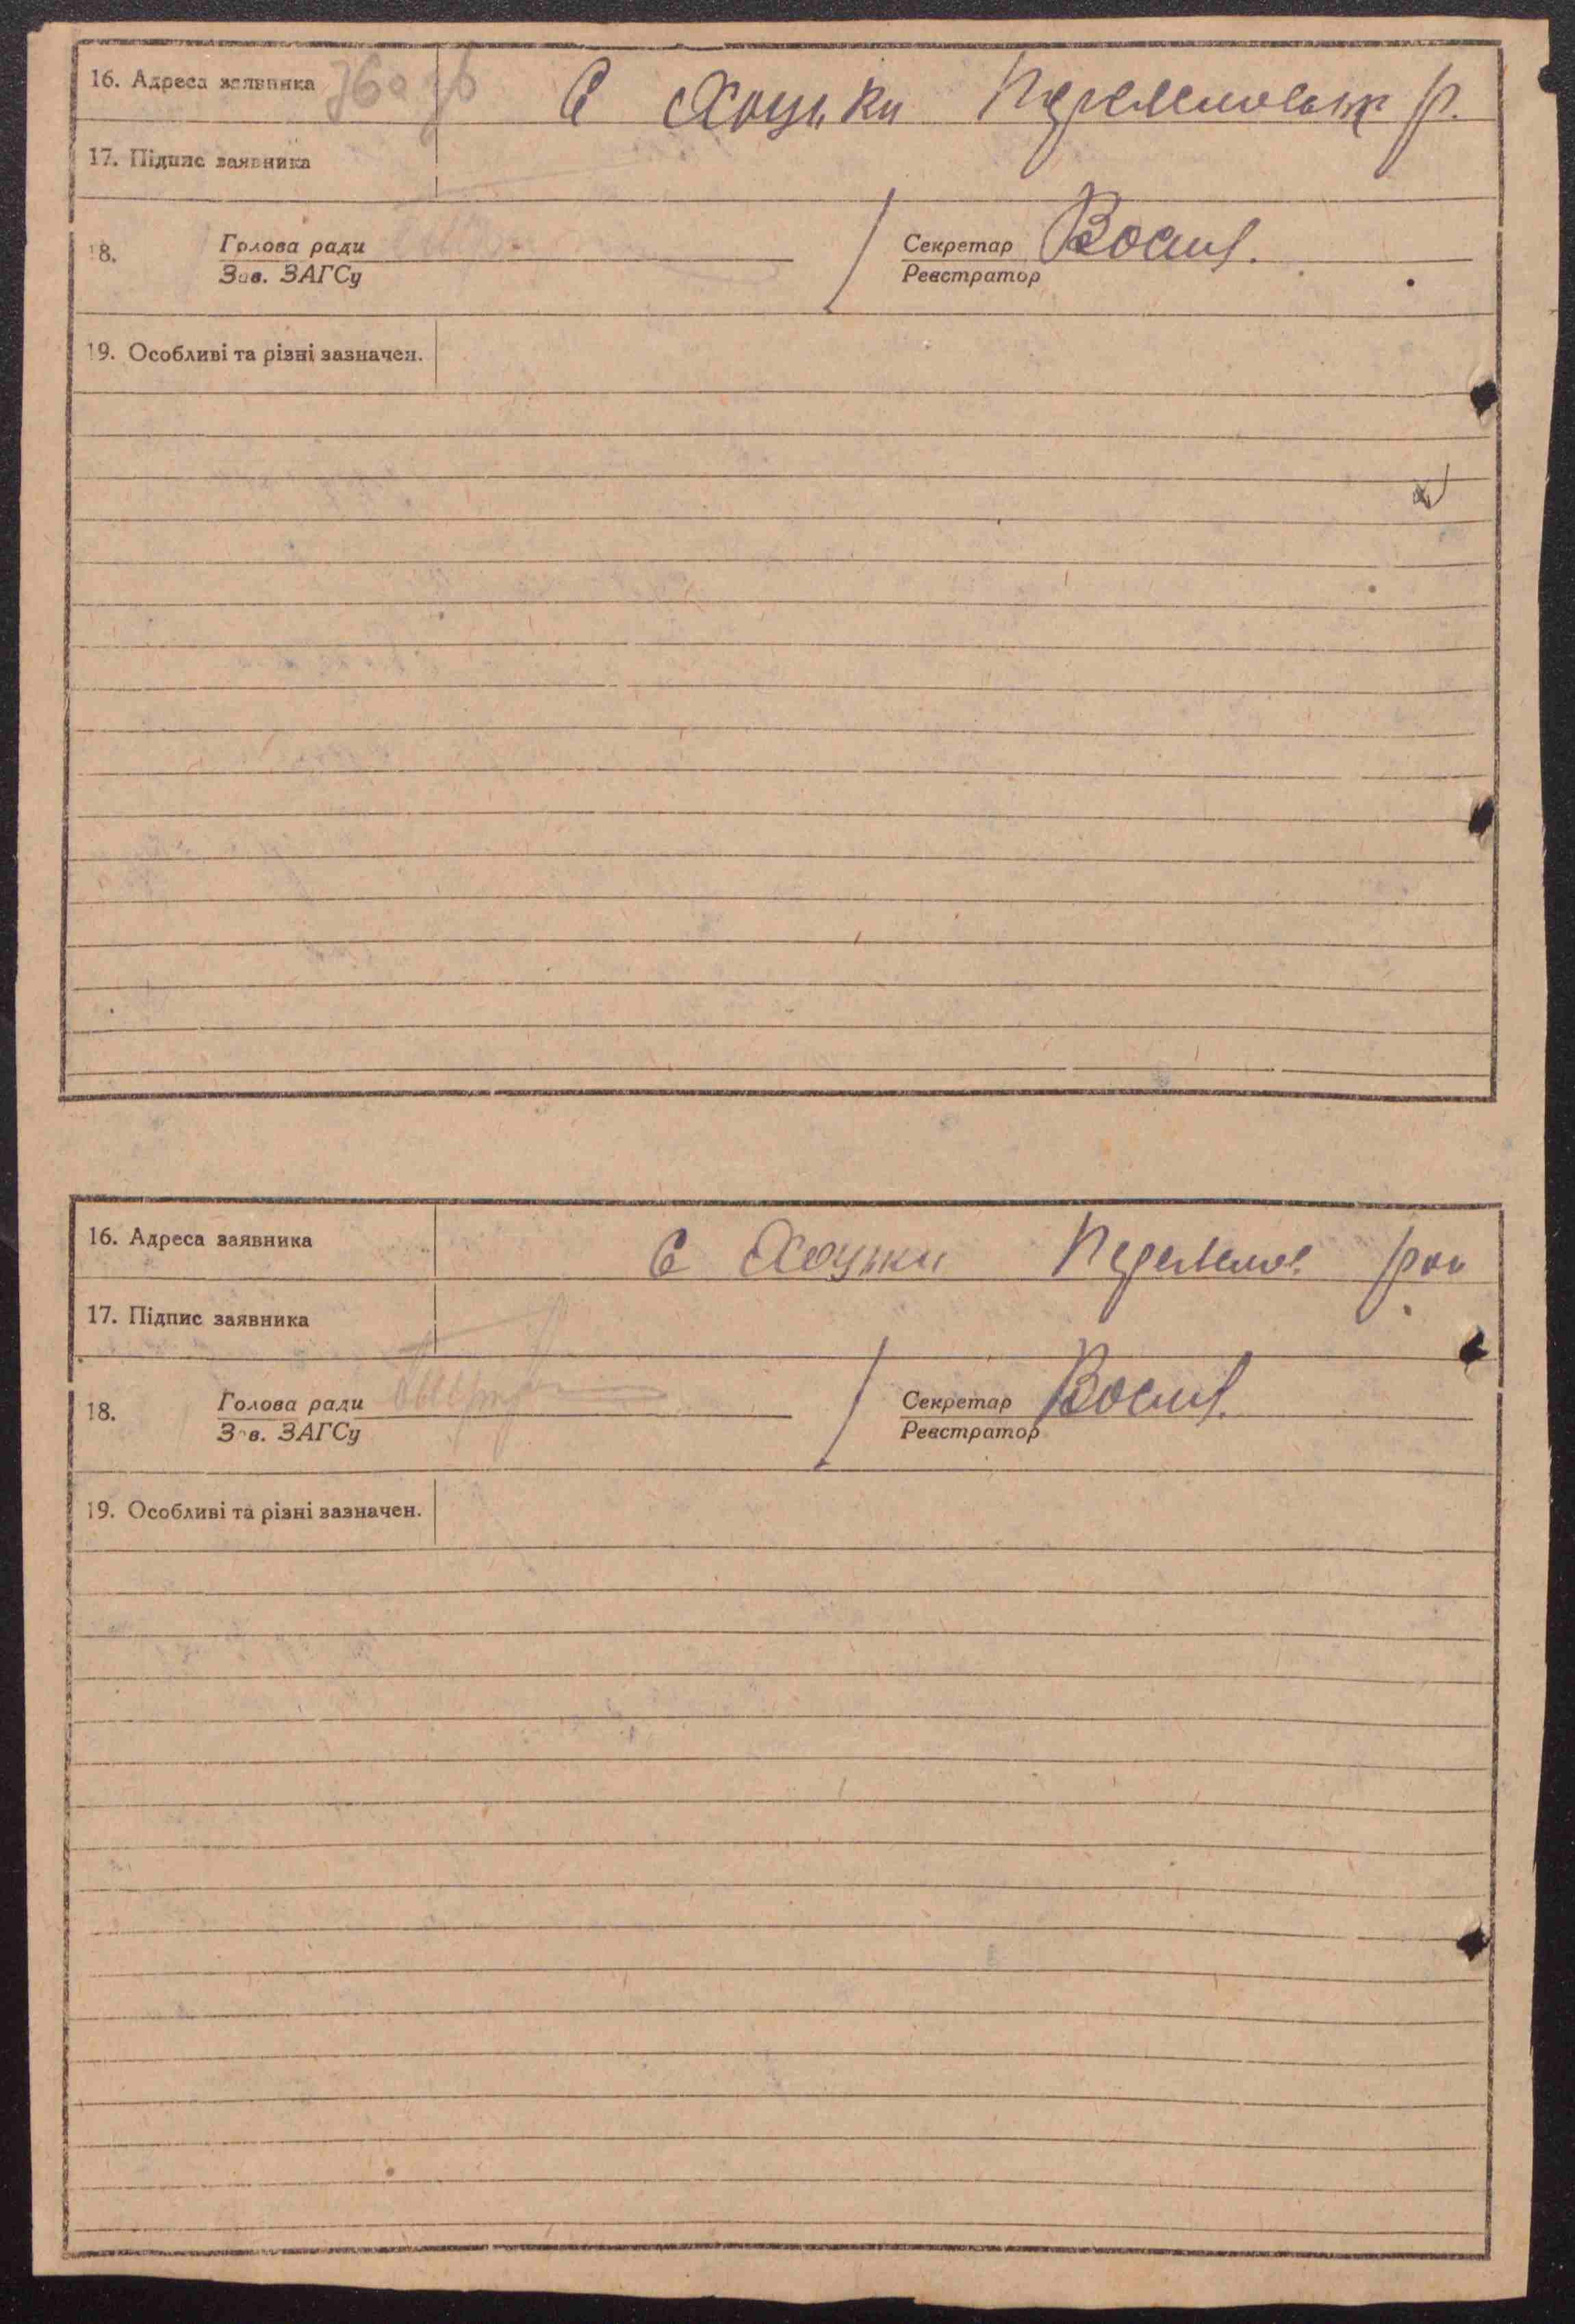 16. Адреса заявника С Хоцьки Переяславськ р.
17. Підпис заявника
18. Голова ради Секретар
Зав. ЗАГСу Реєстратор
19. Особливі та різні зазначен.
16. Адреса заявника С Хоцьки Переяслав. рай
17. Підпис заявника
18. Голова ради Секретар
Зав. ЗАГСу Реєстратор
19. Особливі та різні зазначен.